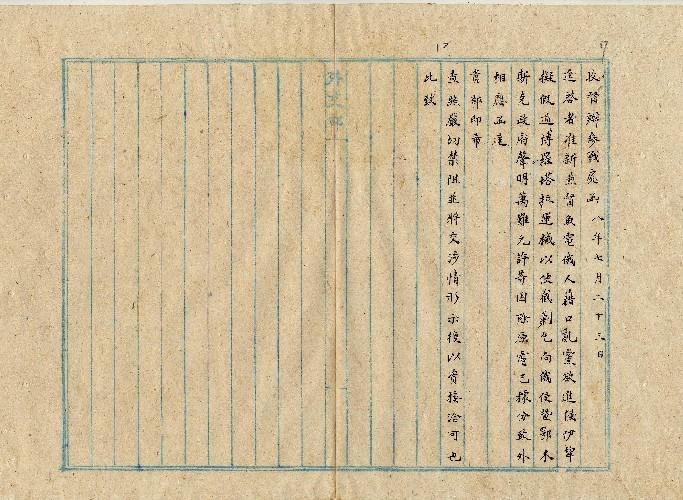 17
17
收督辦參戰處函 八年七月二十三日
逕啓者准新燕督魚電俄人藉口亂黨欲進侵伊犂
擬假道博羅塔拉運械以便截剿乞向俄使曁鄂木
斯克政府聲明萬難允許等因除原電已據分致外
相應函達
貴部卽希
查照嚴切禁阻並將交涉情形示復以資接洽可也
此致
外交部